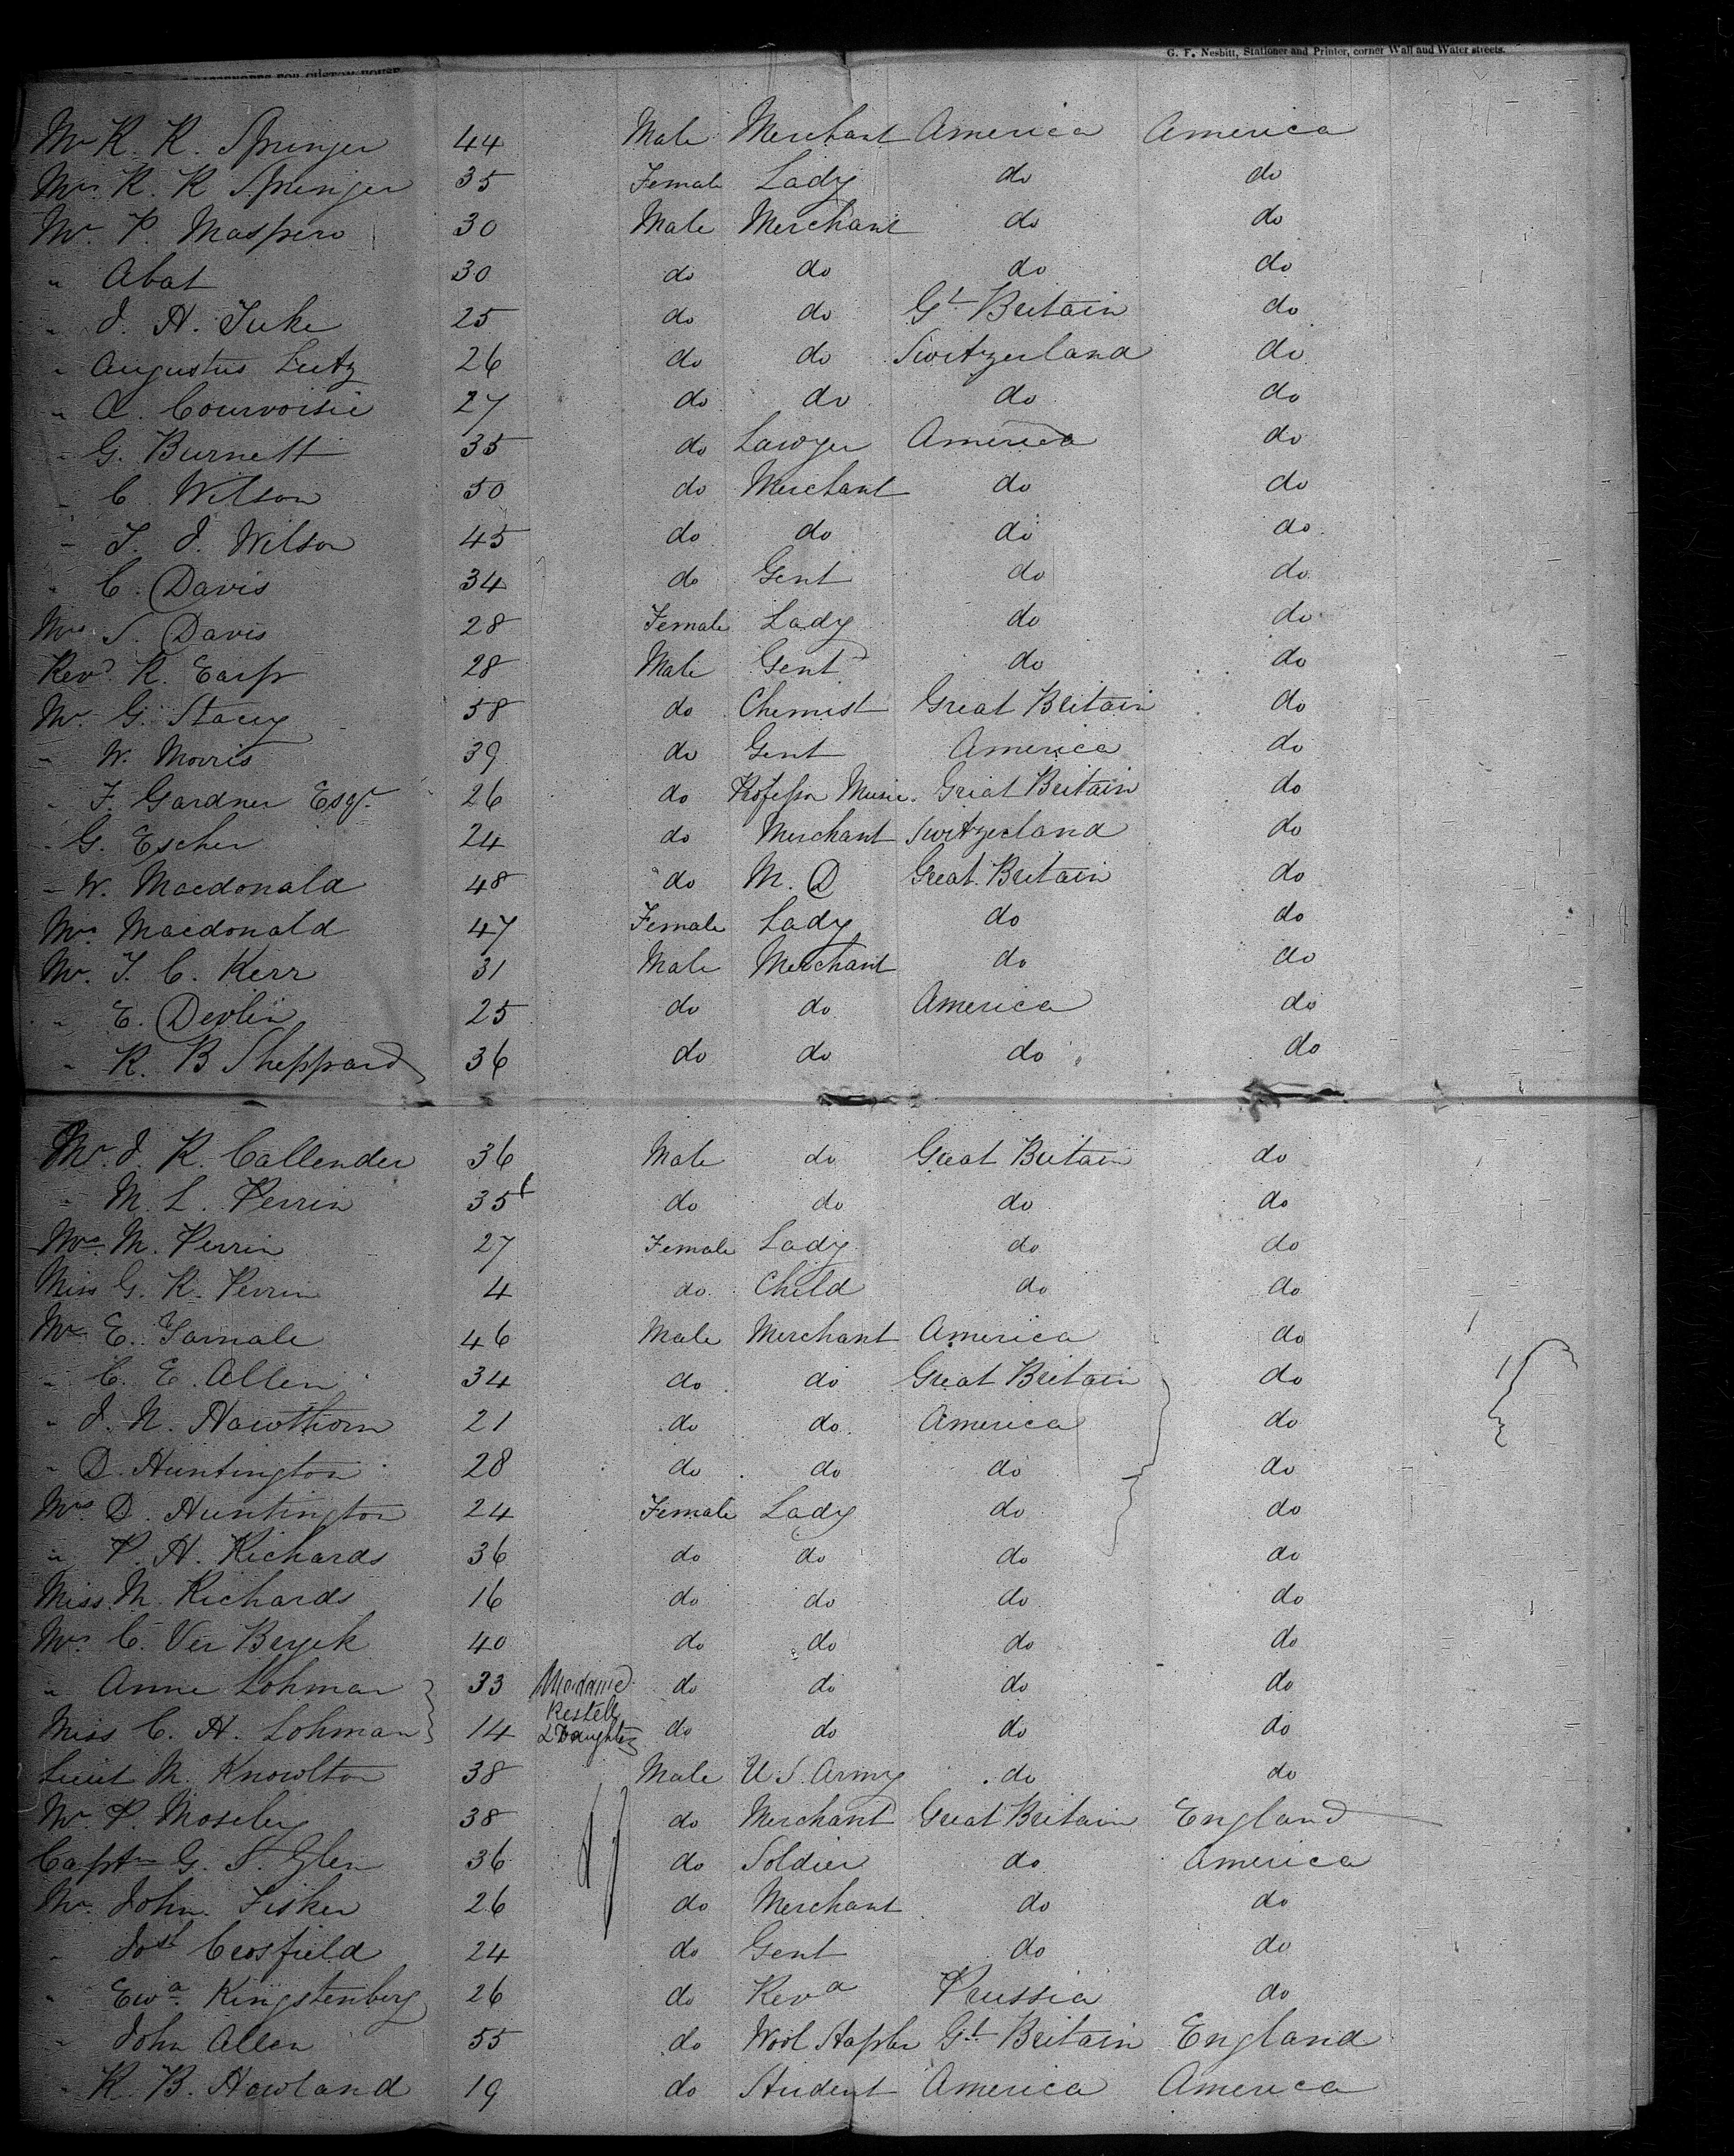 G. F. Nesbitt, Stationer and Printer, corner Wall and Water streets.
PASSENGERS FOR CUSTOM HOUSE
Mr R. R. Springer 44 Male Merchant America America
Mrs R. R Springer 35 Female Lady do do
Mr. P. Maspero 30 Male Merchant do do
" Abat 30 do do do do
" J. H. Tuke 25 do do Gt Britain do
" Augustus Lutz 26 do do Switzerland do
" A. Courvoisie 27 do do do do
" G. Burnett 35 do Lawyer America do
" C Wilson 50 do Merchant do do
" T. J. Wilson 45 do do do do
" C. Davis 34 do Gent do do
Mrs S. Davis 28 Female Lady do do
Revd R. Earp 28 Male Gent do do
Mr. G. Stacey 58 do Chemist Great Britain do
" W. Morris 39 do Gent America do
" F. Gardner Esqr. 26 do Professor Music. Great Britain do
" G. Escher 24 do Merchant Switzerland do
" W. Macdonald 48 do M. D Great Britain do
Mrs Macdonald 47 Female Lady do do
Mr. T. C. Kerr 31 Male Merchant do do
" E. Devlin 25 do do America do
" R. B Sheppard 36 do do do do
Mr. J. R. Callender 36 Male do Great Britain do
" M. L. Perrin 35 do do do do
Mrs M. Perrin 27 Female Lady do do
Miss G. R. Perrin 4 do Child do do
Mr E. Tarnale 46 Male Merchant America do
" C. E. Allen 34 do do Great Britain do
" J. N. Hawthorn 21 do do America do
" D. Huntington 28 do do do do
Mrs D. Huntington 24 Female Lady do do
" P. H. Richards 36 do do do do
Miss M. Richards 16 do do do do
Mrs C. Ver Bryck 40 do do do do
" Anne Lohman 33 Madame do do do do
Restell
Miss C. A. Lohman 14 & Daughter do do do do
Lieut M. Knowlton 38 Male U S. Army do do
Mr. P. Moseley 38 do Merchant Great Britain England
Captn G. S. Glen 36 do Soldier do America
Mr. John Fisher 26 do Merchant do do
" Josh Crosfield 24 do Gent do do
" Ewd. Kingstenberg 26 do Revd Prussia do
" John Allen 55 do Wool Stapler Gt Britain England
" R. B. Howland 19 do Student America America